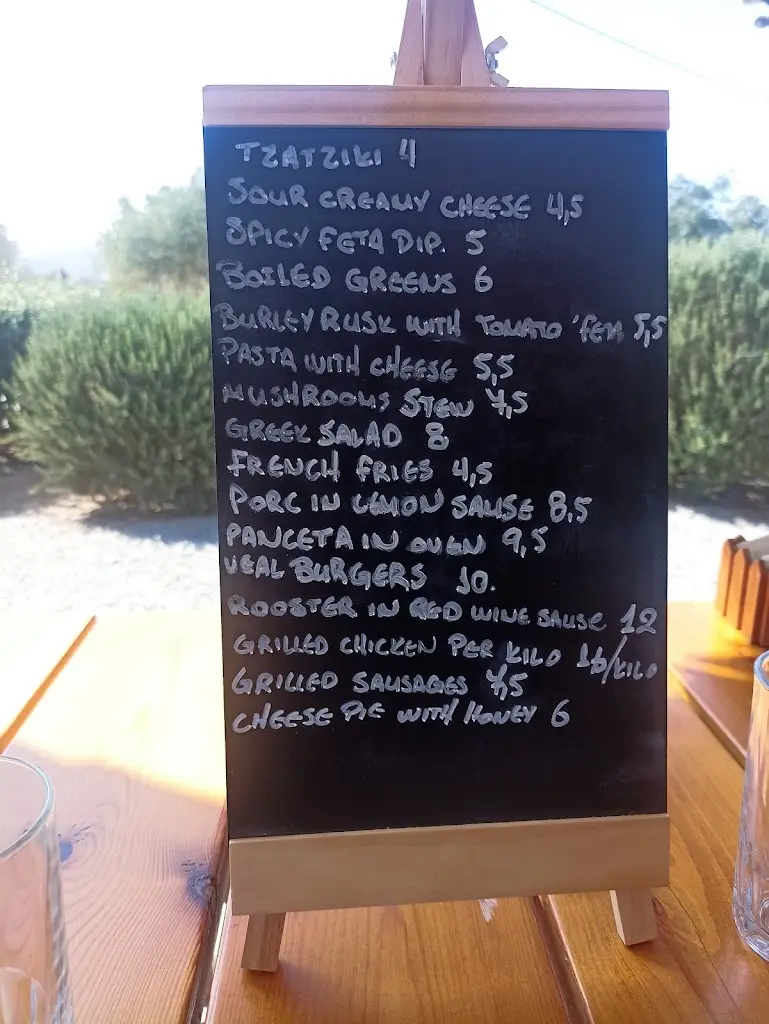 TZATZIKI 4
SOUR CREAMY CHEESE 4,5
SPICY FETA DIP. 5
BOILED GREENS 6
BURLEY RUSK WITH TOMATO 'FETA 5,5
PASTA WITH CHEESE 5,5
MUSHROOMS STEW 7,5
GREEK SALAD 8
FRENCH FRIES 4,5
PORC IN LEMON SAUSE 8,5
PANCETA IN OVEN 9,5
VEAL BURGERS 10.
ROOSTER IN RED WINE SAUSE 12
GRILLED CHICKEN PER KILO 16/KILO
GRILLED SAUSAGES 7,5
CHEESE PIE WITH HONEY 6